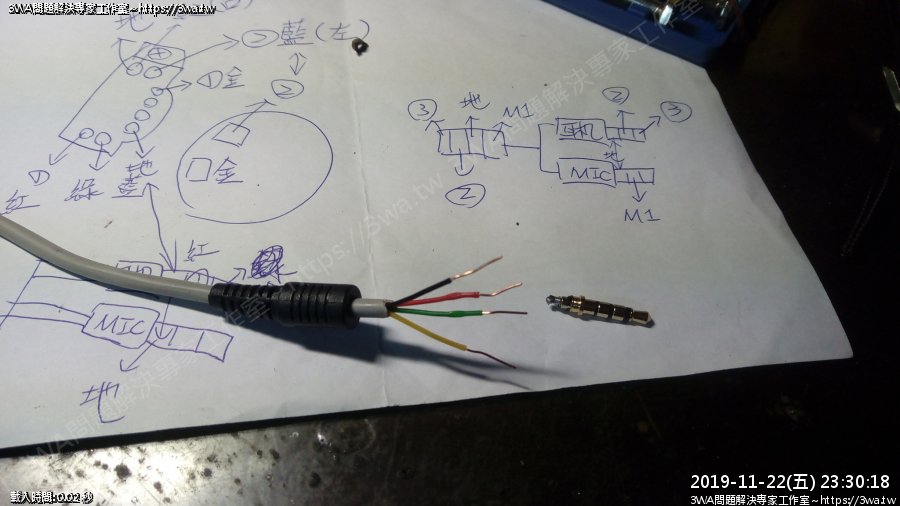 3WA問題解決專家工作室~https://3wa.tw
地
②藍(左)
①金
②
金
紅
綠
藍
地
紅
MIC
地
③
地
M1
②
耳机
②
③
地
MIC
M1
3WA問題解決專家工作室~https://3wa.tw
載入時間:0.02 秒
2019-11-22(五) 23:30:18
3WA問題解決專家工作室~https://3wa.tw